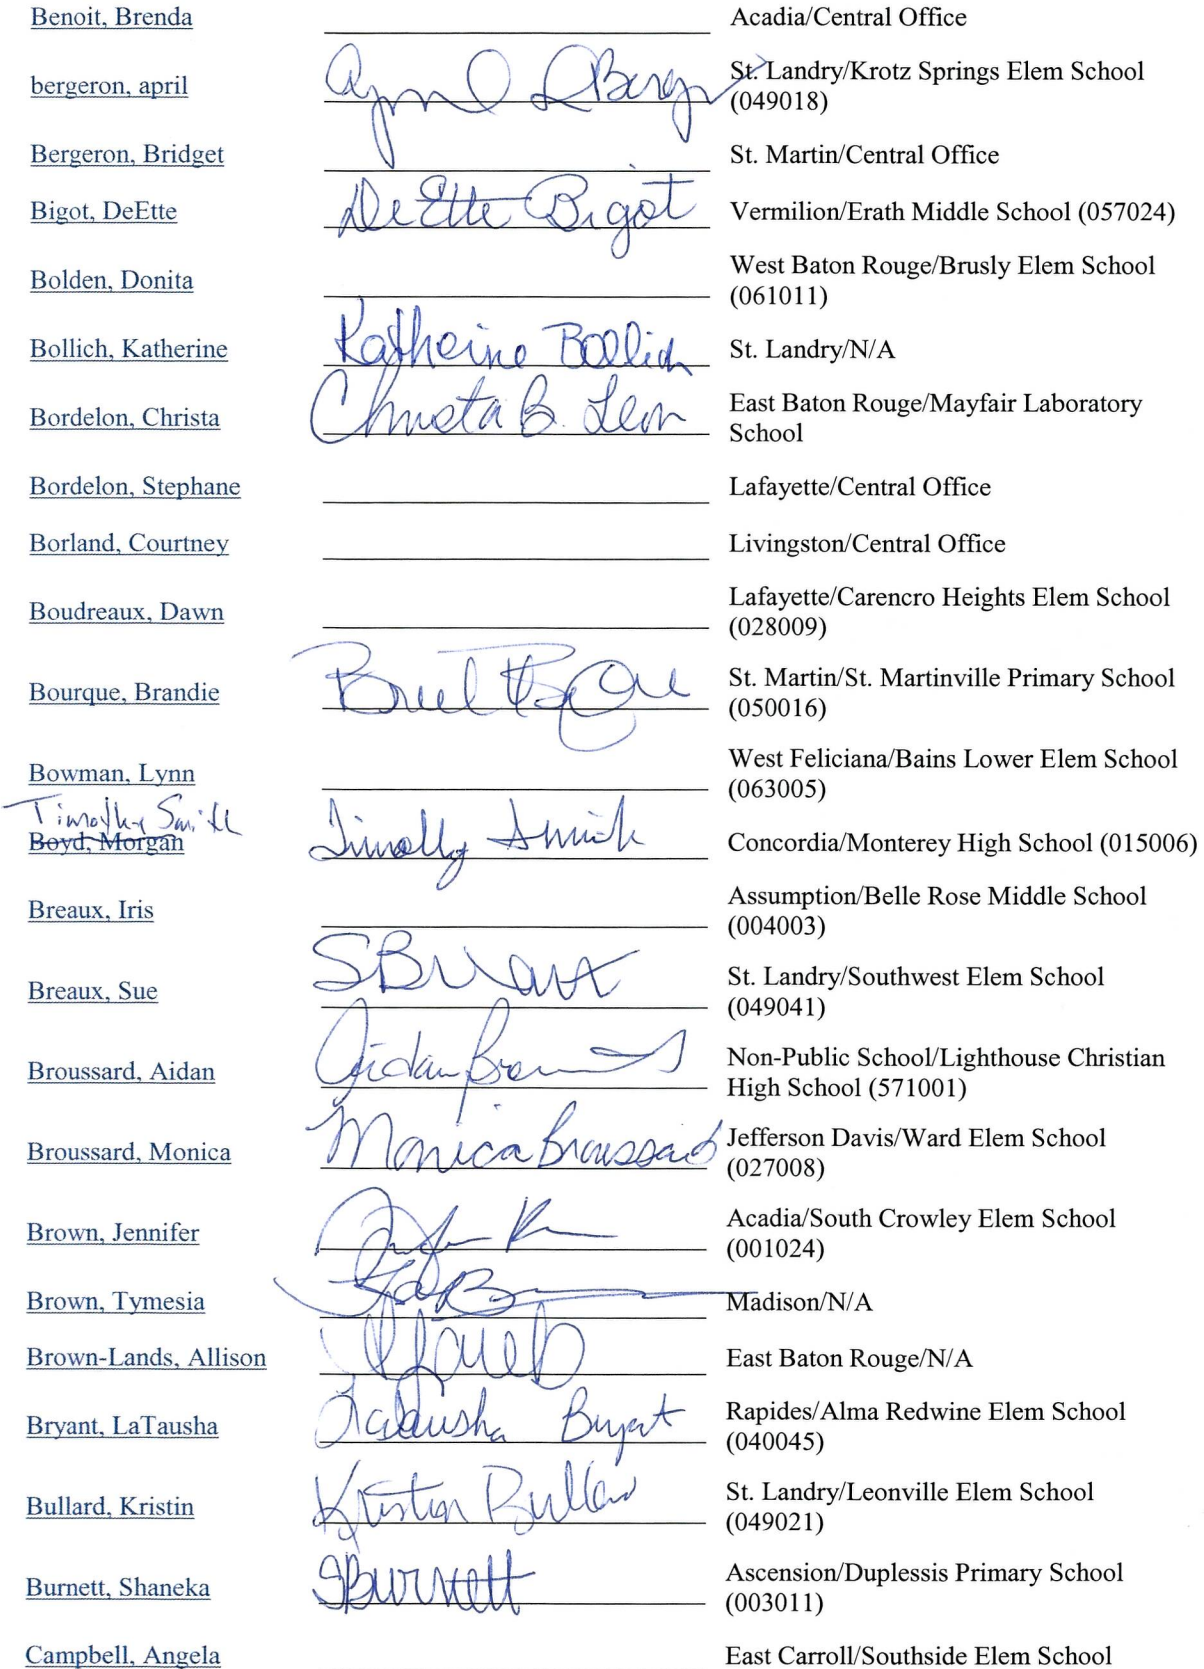 Benoit, Brenda Acadia/Central Office
bergeron, april St. Landry/Krotz Springs Elem School
(049018)
Bergeron, Bridget St. Martin/Central Office
Bigot, DeEtte DeEtte Bigot Vermilion/Erath Middle School (057024)
Bolden, Donita West Baton Rouge/Brusly Elem School
(061011)
Bollich, Katherine Katherine Bollich St. Landry/N/A
Bordelon, Christa Christa B. Leon East Baton Rouge/Mayfair Laboratory
School
Bordelon, Stephane Lafayette/Central Office
Borland, Courtney Livingston/Central Office
Boudreaux, Dawn Lafayette/Carencro Heights Elem School
(028009)
Bourque, Brandie St. Martin/St. Martinville Primary School
(050016)
Bowman, Lynn West Feliciana/Bains Lower Elem School
(063005)
Timothy Smith
Boyd, Morgan Timothy Smith Concordia/Monterey High School (015006)
Breaux, Iris Assumption/Belle Rose Middle School
(004003)
Breaux, Sue SBreaux St. Landry/Southwest Elem School
(049041)
Broussard, Aidan Non-Public School/Lighthouse Christian
High School (571001)
Broussard, Monica Monica Broussard Jefferson Davis/Ward Elem School
(027008)
Brown, Jennifer Acadia/South Crowley Elem School
(001024)
Brown, Tymesia Madison/N/A
Brown-Lands, Allison East Baton Rouge/N/A
Bryant, LaTausha LaTausha Bryant Rapides/Alma Redwine Elem School
(040045)
Bullard, Kristin Kristin Bullard St. Landry/Leonville Elem School
(049021)
Burnett, Shaneka SBurnett Ascension/Duplessis Primary School
(003011)
Campbell, Angela East Carroll/Southside Elem School